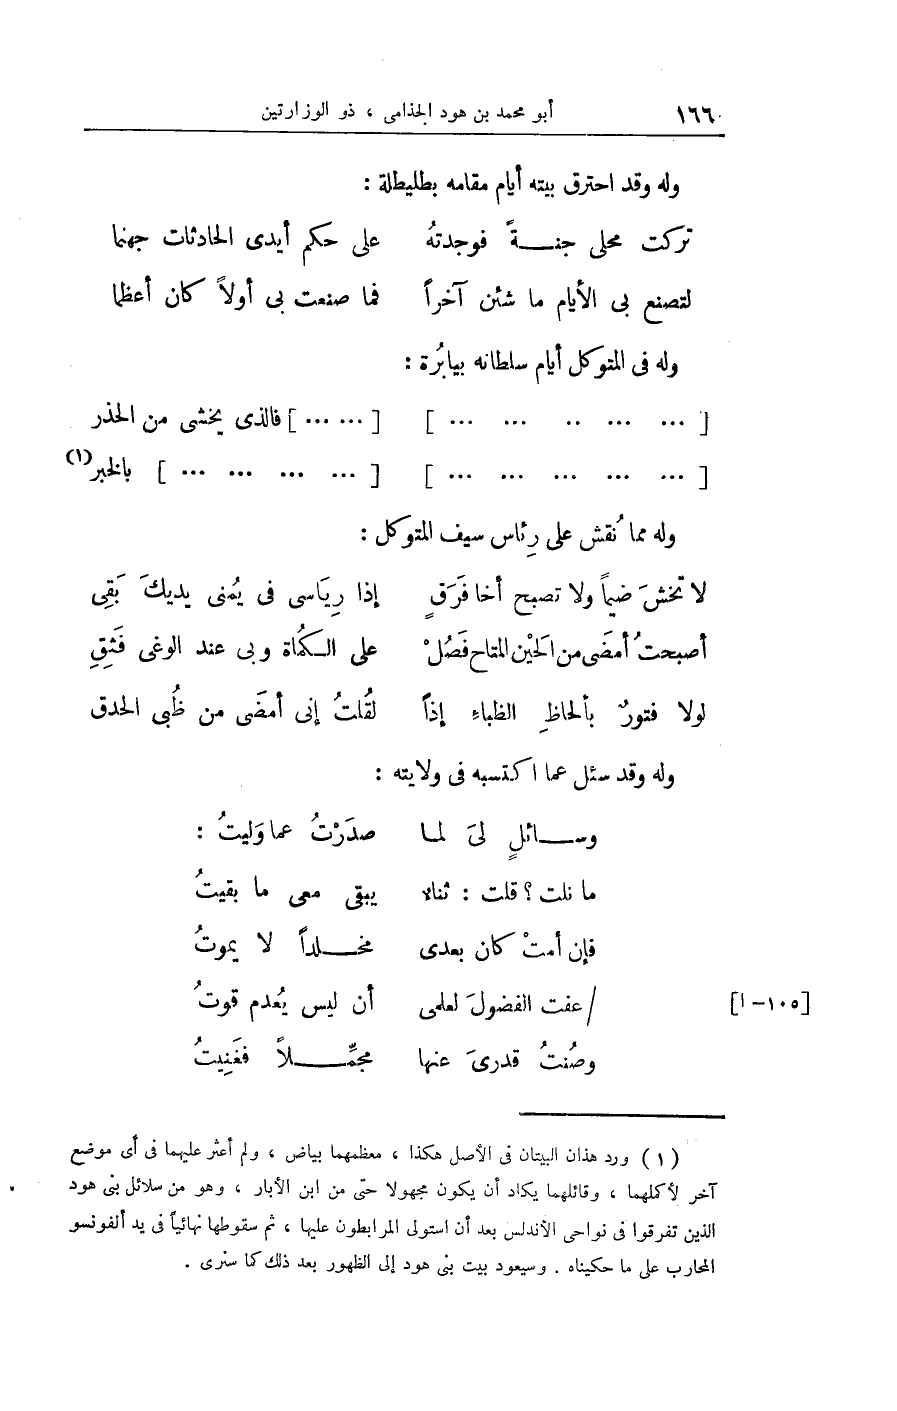 ١٦٦ أبو محمد بن هود الجذامى ، ذو الوزارتين
وله وقد احترق بيته أيام مقامه بطليطلة :
تركت محلى جنـــةً فوجدتهُ على حكم أيدى الحادثات جهنما
لتصنع بى الأيام ما شئن آخراً فما صنعت بى أولاً كان أعظما
وله فى المتوكل أيام سلطانه بيابُرة :
[ ... ... .. ... ... ] [ ... ... ] فالذى يخشى من الحذر
[ ... ... ... ... ... ] [ ... ... ... ... ] بالخبر(١)
وله مما نُقش على رِئاس سيف المتوكل :
لا تخشَ ضيماً ولا تصبح أخا فَرَقٍ إذا رِيَاسى فى يُمنى يديكَ بَقِى
أصبحتُ أمضَى من الحَيْن المتاح فَصُلْ على الـكُماة وبى عند الوغى فَثِقِ
لولا فتورٌ بألحاظِ الظباءِ إذاً لقُلتُ إنى أمضَى من ظُبى الحدق
وله وقد سئل عما اكتسبه فى ولايته :
وســـائلٍ لىَ لمـا صدَرْتُ عما وَليتُ :
ما نلت ؟ قلت : ثناء يبقى معى ما بقيتُ
فإن أمتْ كان بعدى مخــلداً لا يموتُ
/ عفت الفضولَ لعلمى أن ليس يُعدم قوتُ [١٠٥-ا]
وصُنتُ قدرىَ عنها مجمِّـــلاً فغَنِيتُ
(١) ورد هذان البيتان فى الأصل هكذا ، معظمهما بياض ، ولم أعثر عليهما فى أى موضع
آخر لأكملهما ، وقائلهما يكاد أن يكون مجهولا حتى من ابن الأبار ، وهو من سلائل بنى هود
الذين تفرقوا فى نواحى الأندلس بعد أن استولى المرابطون عليها ، ثم سقوطها نهائياً فى يد ألفونسو
المحارب على ما حكيناه . وسيعود بيت بنى هود إلى الظهور بعد ذلك كما سنرى .